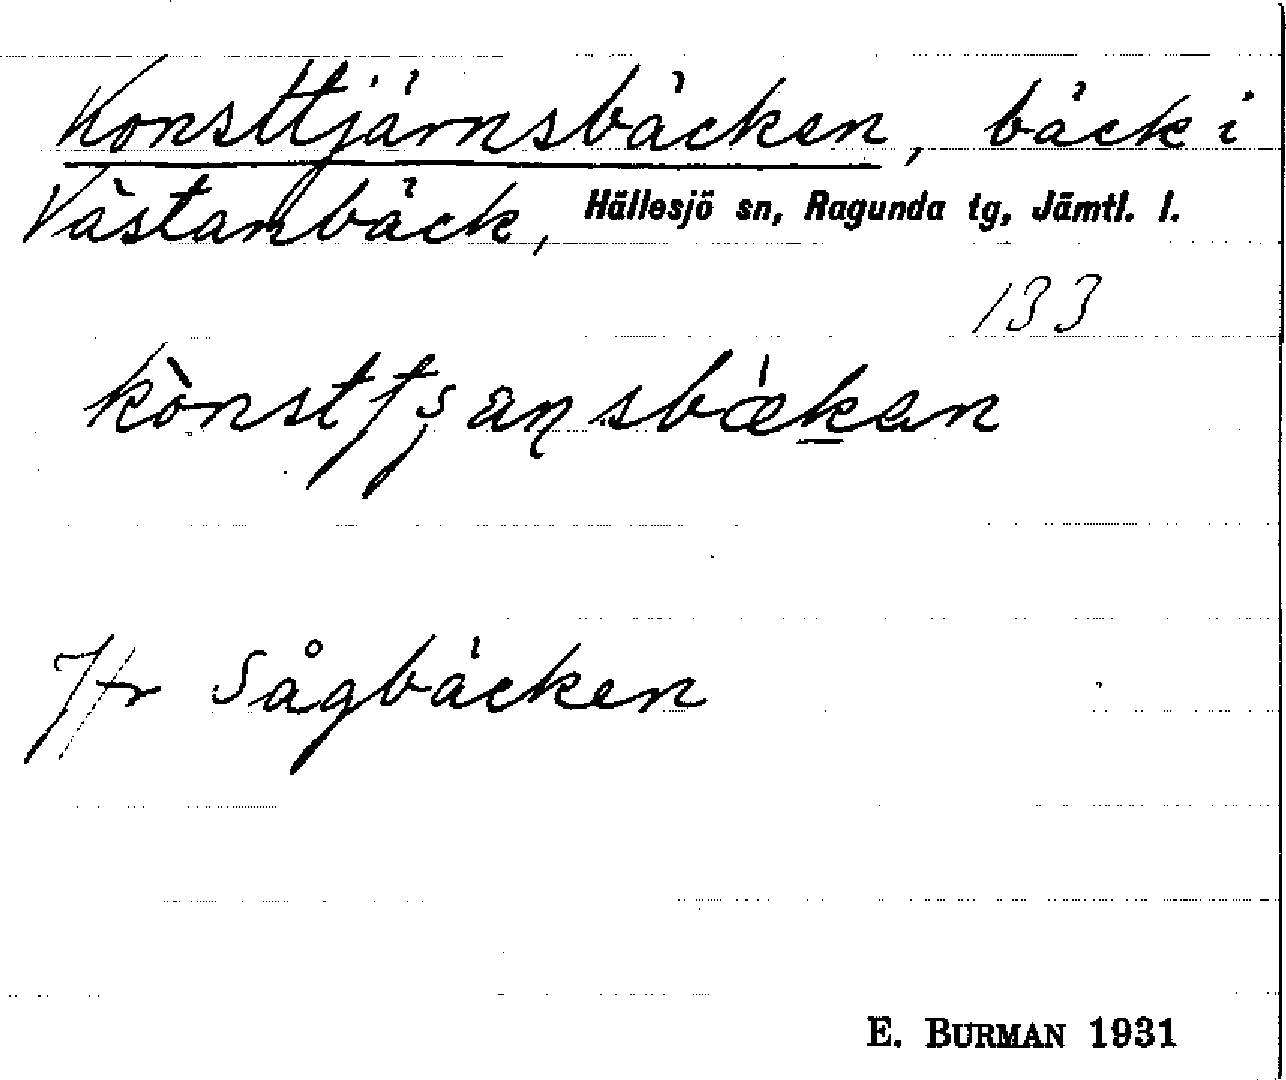 Konsttjärnsbäcken, bäck i
Västanbäck, Hällesjö sn, Ragunda tg, Jämtl. l.
133
Jfr Sågbäcken
E. BURMAN 1931